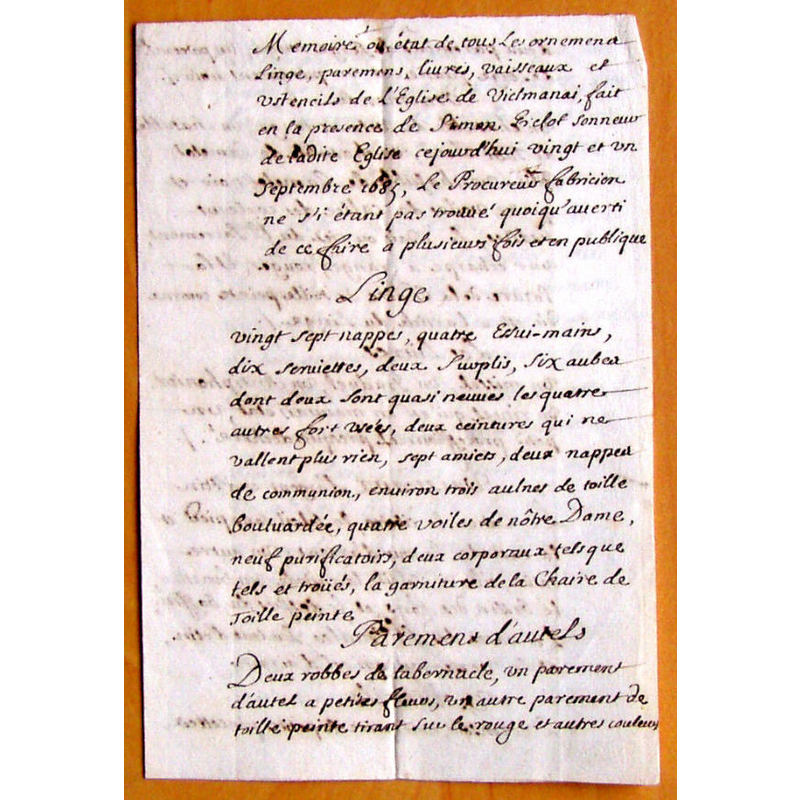 Memoire ou état de tous Les ornemens
Linge, paremens, livres, vaisseaux et
vstencils de L'Eglise de Vielmanai, fait
en la presence de Simon Sonneur
de ladite Eglise cejourd'hui vingt et vn
Septembre 1685, Le Procureur fabricien
ne s'i étant pas trouué quoiqu'auerti
de ce faire a plusieurs fois et en publique
Linge
vingt sept nappes, quatre Essui-mains,
dix seruiettes, deux Surplis, Six aubes
dont deux sont quasi neuues les quatre
autres fort vsées, deux ceintures qui ne
vallent plus rien, sept amicts, deux nappes
de communion, environ trois aulnes de toille
bouluardée, quatre voiles de nôtre Dame,
neuf purificatoirs, deux corporaux tels que
tels et troüés, la garniture de la Chaire de
Toille peinte
Paremens d'autels
Deux robbes de tabernacle, vn parement
d'autel a petites fleurs, vn autre parement de
toille peinte tirant sur le rouge et autres couleurs